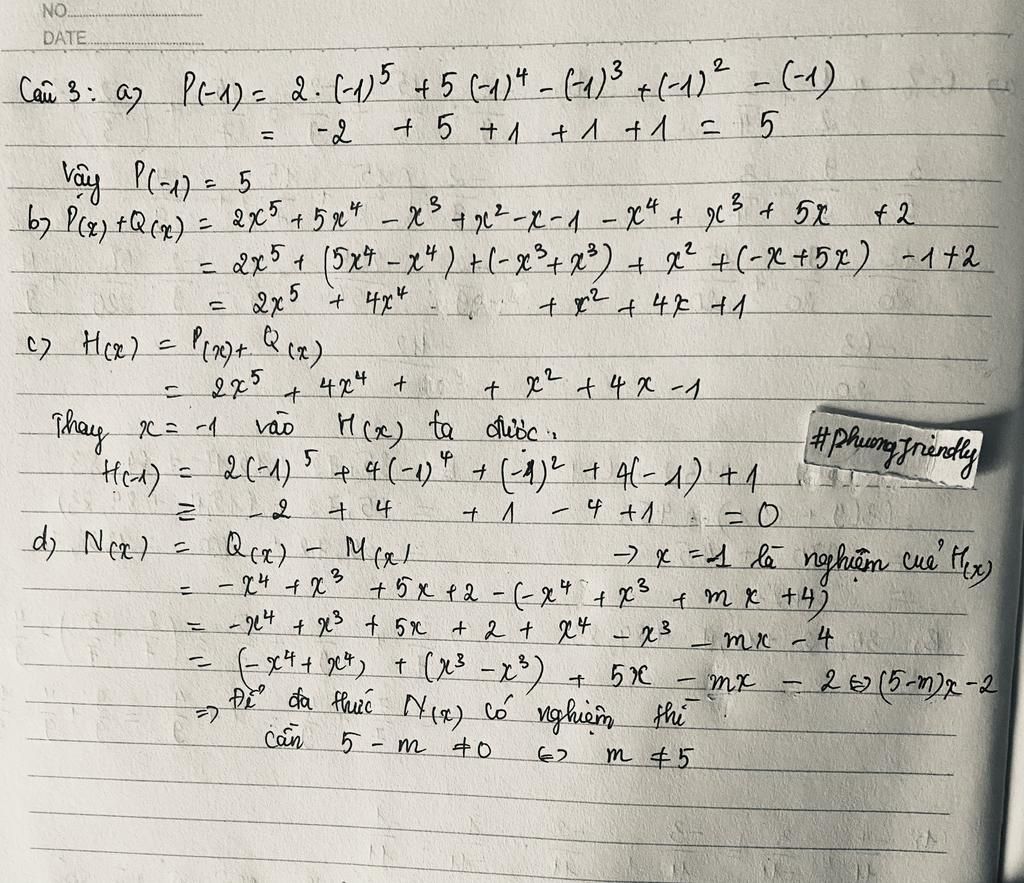 NO
DATE
Câu 3: a) P(-1) = 2 . (-1)⁵ + 5 (-1)⁴ - (-1)³ + (-1)² - (-1)
= -2 + 5 + 1 + 1 + 1 = 5
Vậy P(-1) = 5
b) P(x) + Q(x) = 2x⁵ + 5x⁴ - x³ + x² - x - 1 - x⁴ + x³ + 5x + 2
= 2x⁵ + (5x⁴ - x⁴) + (-x³ + x³) + x² + (-x + 5x) - 1 + 2
= 2x⁵ + 4x⁴ + x² + 4x + 1
c) H(x) = P(x) + Q(x)
= 2x⁵ + 4x⁴ + + x² + 4x - 1
Thay x = -1 vào H(x) ta được:
#phuongfriendly
H(-1) = 2(-1)⁵ + 4(-1)⁴ + (-1)² + 4(-1) + 1
= -2 + 4 + 1 - 4 + 1 = 0
d) N(x) = Q(x) - M(x) → x = -1 là nghiệm của H(x)
= -x⁴ + x³ + 5x + 2 - (-x⁴ + x³ + mx + 4)
= -x⁴ + x³ + 5x + 2 + x⁴ - x³ - mx - 4
= (-x⁴ + x⁴) + (x³ - x³) + 5x - mx - 2 ⇔ (5-m)x - 2
⇒ Để đa thức N(x) có nghiệm thì
cần 5 - m ≠ 0 ⇔ m ≠ 5